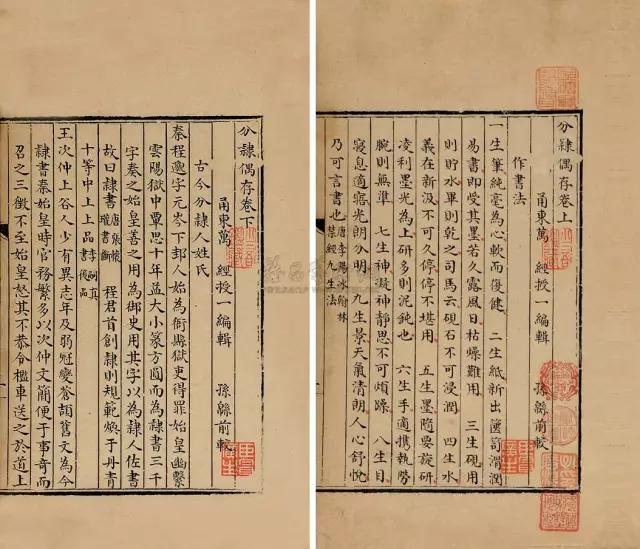 分隸偶存卷上
甬東萬 經授一編輯 孫緜前較
作書法
一生筆純毫為心軟而復健 二生紙新出篋笥滑潤
易書即受其墨若久露風日枯燥難用 三生硯用
則貯水畢則乾之司馬云硯石不可浸潤 四生水
義在新汲不可久停停不堪用 五生墨隨要旋研
凌利墨光為上研多則泥鈍也 六生手適攜執勞
腕則無準 七生神凝神靜思不可煩躁 八生目
寢息適寤光朗分明 九生景天氣清朗人心舒悅
乃可言書也 唐李陽冰翰林禁經九生法
分隸偶存卷下
甬東萬 經授一編輯 孫緜前較
古今分隸人姓氏
秦程邈字元岑下邽人始為衙縣獄吏得罪始皇幽繫
雲陽獄中覃思十年益大小篆方圓而為隸書三千
字奏之始皇善之用為御史用其字以為隸人佐書
故曰隸書 唐張懷瓘書斷 程君首創隸則規範煥于丹青
十等中上上品 李嗣真書後品
王次仲上谷人少有異志年及弱冠變蒼頡舊文為今
隸書秦始皇時官務繁多以次仲文簡便于事奇而
召之三徵不至始皇怒其不恭令檻車送之於道上